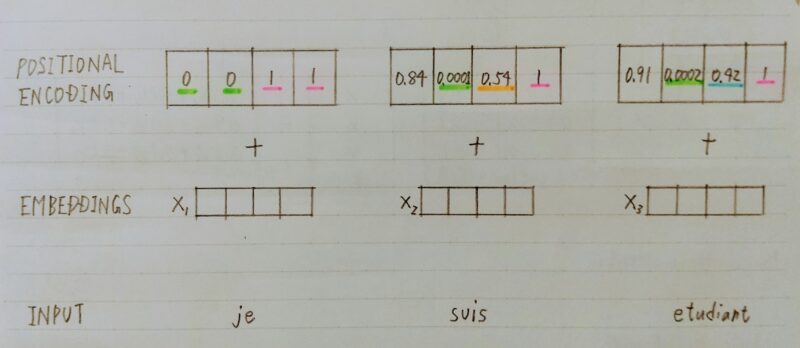 POSITIONAL ENCODING
0 0 1 1
0.84 0.0001 0.54 1
0.91 0.0002 0.42 1
+ + +
EMBEDDINGS X1 X2 X3
INPUT je suis etudiant